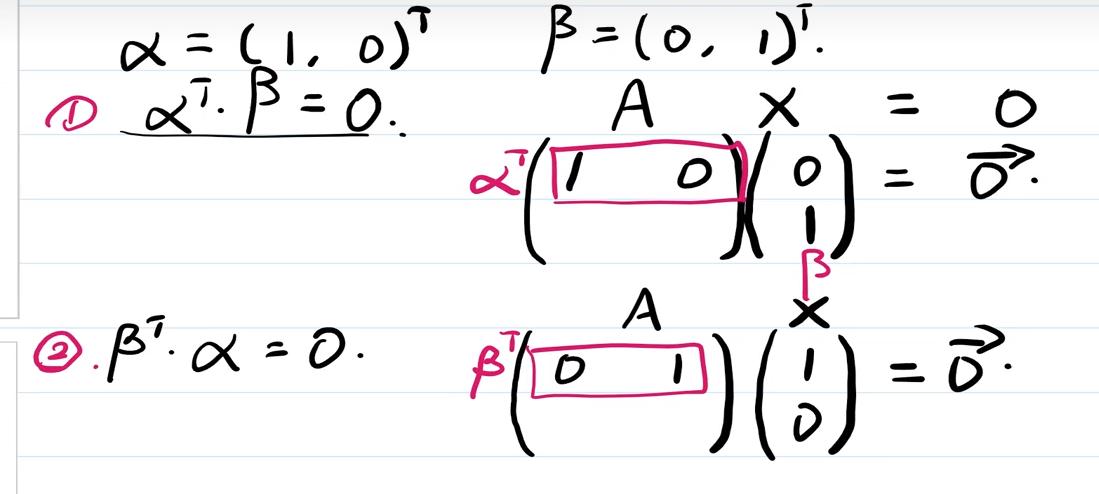 α = (1, 0)ᵀ β = (0, 1)ᵀ.
① αᵀ · β = 0. A X = 0
αᵀ ( 1 0 ) ( 0 1 ) = 0⃗.
β
A X
② . βᵀ · α = 0. βᵀ ( 0 1 ) ( 1 0 ) = 0⃗.